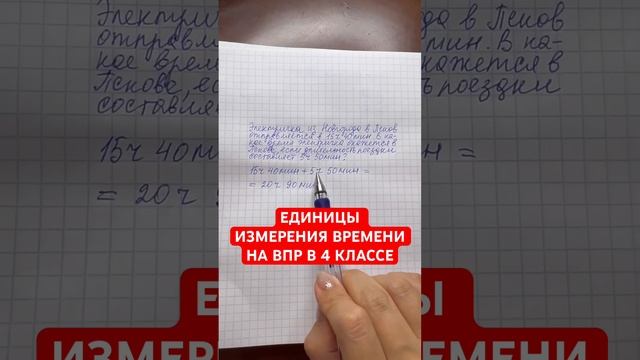 Электричка из Новгорода в Псков
отправляется в 15ч 40мин. В ка-
кое время электричка окажется в
Пскове, если длительность поездки
составляет 5ч 50мин?
15ч 40мин + 5ч 50мин =
= 20ч 90мин
ЕДИНИЦЫ
ИЗМЕРЕНИЯ ВРЕМЕНИ
НА ВПР В 4 КЛАССЕ